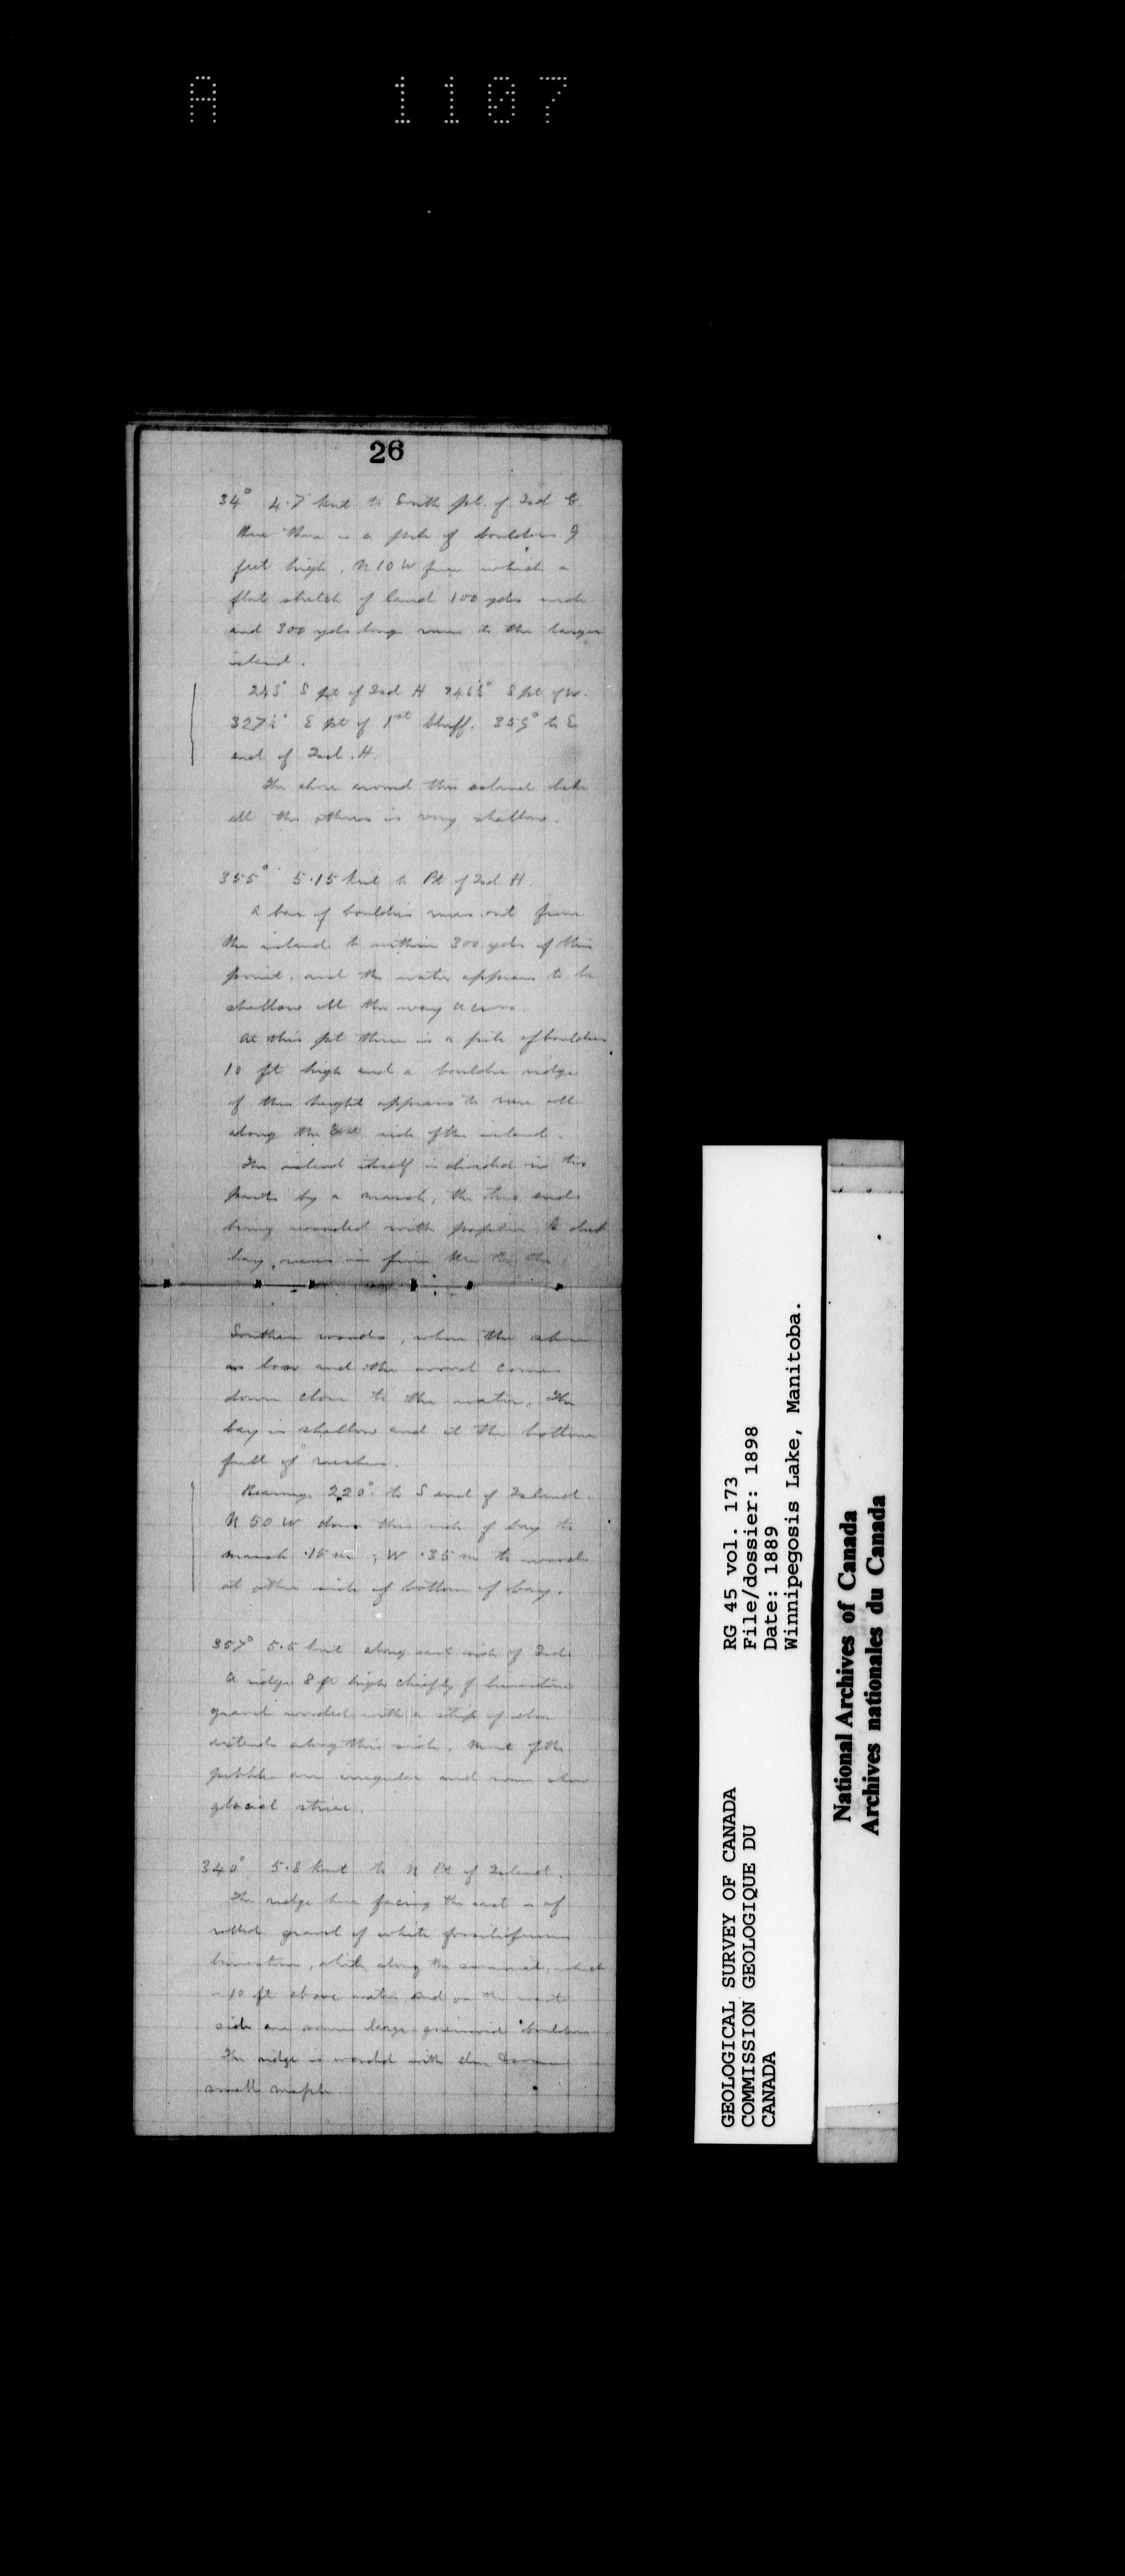 A 1107
26
34° 4.7 knt to South pt. of Isd G
Here there is a pile of boulders 9
feet high, N 10 W from which a
flat stretch of land 100 yds wide
and 300 yds long runs to the larger
island.
243° S pt of Isd H 246½° S pt of
327½° E pt of 1st bluff. 355° to E
end of Isd. H.
The shore around this island like
all the others is very shallow.
355° 5.15 knt to Pt of Isd H.
A bar of boulders runs out from
the island to within 300 yds of this
point, and the water appears to be
shallow all the way across.
At this pt there is a pile of boulders
10 ft high and a boulder ridge
of this height appears to run all
along the side of the island.
The island itself is divided in two
parts by a marsh, the two ends
being wooded with poplar. A
bay runs in from the to the
Southern woods, where the shore
is low and the wood comes
down close to the water. The
bay is shallow and at the bottom
full of rushes.
Bearing 220° to S end of Island.
N 50 W down this side of bay to
marsh .15 m, W .35 m to woods
at other side of bottom of bay.
357° 5.5 knt along east side of Isd.
A ridge 8 ft high chiefly of limestone
gravel wooded with a strip of elm
extends along this side. Most of the
pebbles are irregular and some show
glacial striae.
340° 5.8 knt to N Pt of Island.
The ridge here facing the east is of
rolled gravel of white fossiliferous
limestone, while along the summit, which
is 10 ft above water, and on the west
side are some large gneissoid boulders
The ridge is wooded with elm & some
small maple.
GEOLOGICAL SURVEY OF CANADA
COMMISSION GEOLOGIQUE DU
CANADA
RG 45 vol. 173
File/dossier: 1898
Date: 1889
Winnipegosis Lake, Manitoba.
National Archives of Canada
Archives nationales du Canada